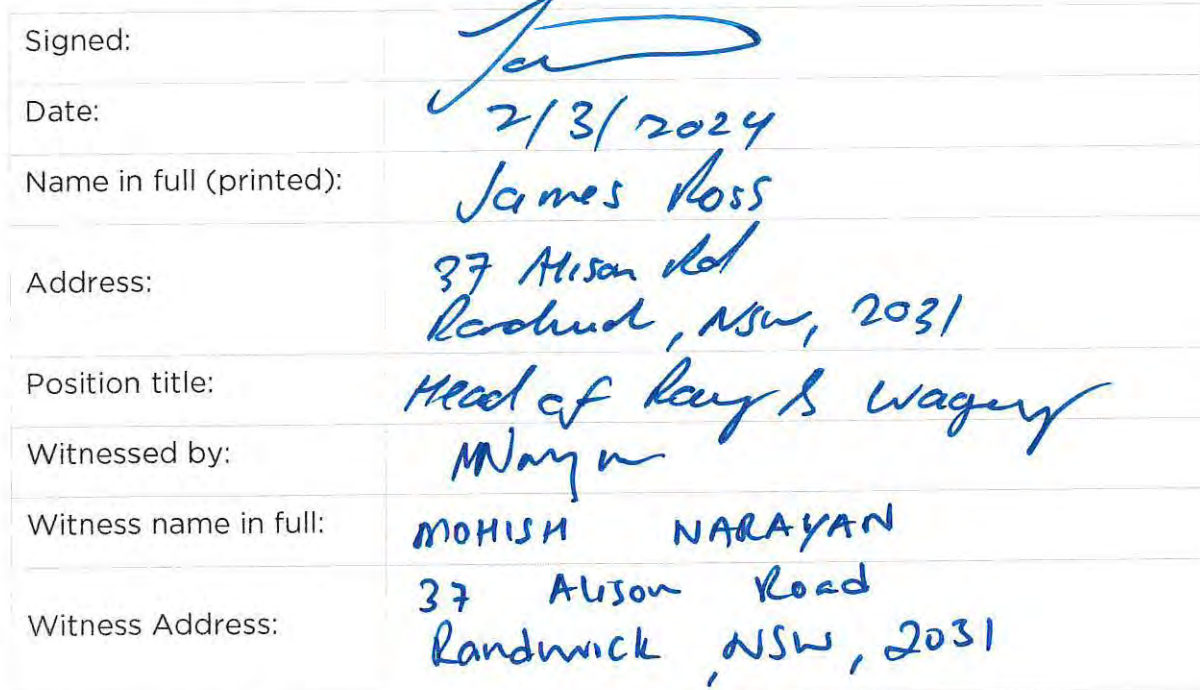 Signed:
Date: 2/3/2024
Name in full (printed): James Ross
Address: 37 Alison Rd
Randwick, NSW, 2031
Position title: Head of Racing & Wagering
Witnessed by: MNarayan
Witness name in full: MOHISH NARAYAN
Witness Address: 37 Alison Road
Randwick, NSW, 2031